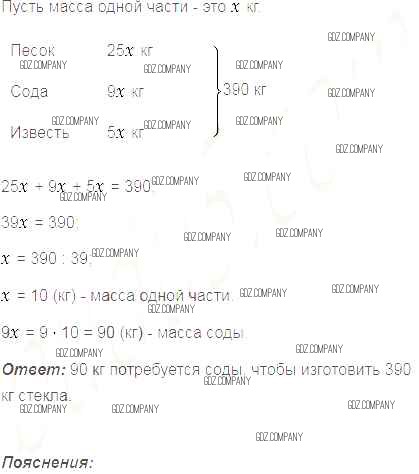 Пусть масса одной части - это x кг.
GDZ.COMPANY
Песок 25x кг
GDZ.COMPANY GDZ.COMPANY GDZ.COMPANY
Сода 9x кг 390 кг
GDZ.COMPANY GDZ.COMPANY GDZ.COMPANY
Известь 5x кг
GDZ.COMPANY
GDZ.COMPANY
25x + 9x + 5x = 390;
GDZ.COMPANY
GDZ.COMPANY
39x = 390;
GDZ.COMPANY GDZ.COMPANY
x = 390 : 39;
GDZ.COMPANY
x = 10 (кг) - масса одной части.
GDZ.COMPANY GDZ.COMPANY
9x = 9 · 10 = 90 (кг) - масса соды.
GDZ.COMPANY GDZ.COMPANY
Ответ: 90 кг потребуется соды, чтобы изготовить 390
GDZ.COMPANY
кг стекла.
GDZ.COMPANY GDZ.COMPANY GDZ.COMPANY
GDZ.COMPANY
Пояснения: